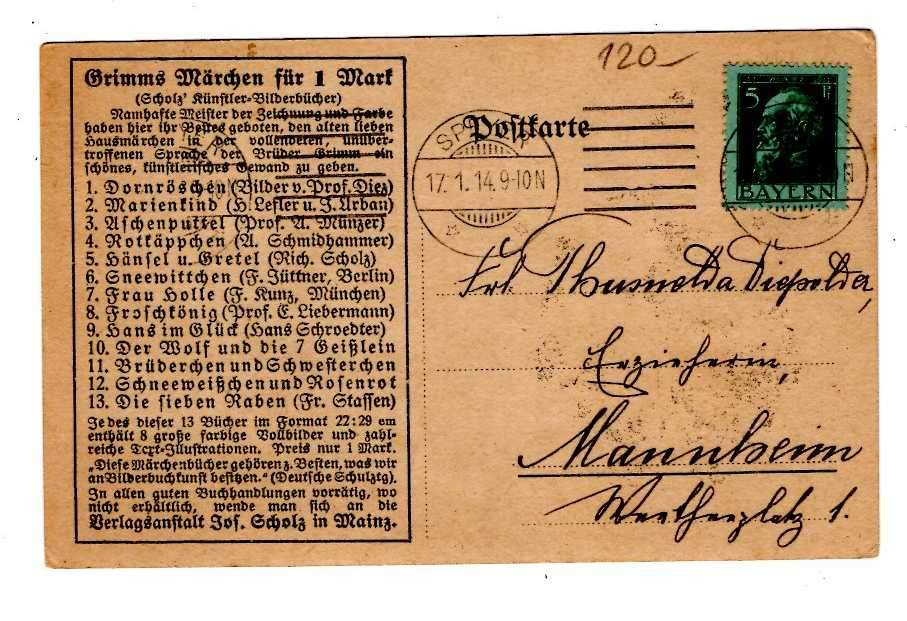 Grimms Märchen für 1 Mark
(Scholz' Künstler-Bilderbücher)
Namhafte Meister der Zeichnung und Farbe
haben hier ihr Bestes geboten, den alten lieben
Hausmärchen in der vollendeten, unüber-
troffenen Sprache der Brüder Grimm ein
schönes, künstlerisches Gewand zu geben.
1. Dornröschen (Bilder v. Prof. Diez)
2. Marienkind (H. Lefler u. J. Urban)
3. Aschenputtel (Prof. A. Münzer)
4. Rotkäppchen (A. Schmidhammer)
5. Hänsel u. Gretel (Rich. Scholz)
6. Sneewittchen (F. Jüttner, Berlin)
7. Frau Holle (F. Kunz, München)
8. Froschkönig (Prof. E. Liebermann)
9. Hans im Glück (Hans Schroedter)
10. Der Wolf und die 7 Geißlein
11. Brüderchen und Schwesterchen
12. Schneeweißchen und Rosenrot
13. Die sieben Raben (Fr. Stassen)
Jedes dieser 13 Bücher im Format 22:29 cm
enthält 8 große farbige Vollbilder und zahl-
reiche Text-Illustrationen. Preis nur 1 Mark.
„Diese Märchenbücher gehören z. Besten, was wir
an Bilderbuchkunst besitzen.“ (Deutsche Schulztg).
In allen guten Buchhandlungen vorrätig, wo
nicht erhältlich, wende man sich an die
Verlagsanstalt Jos. Scholz in Mainz.
120
Postkarte
17. 1. 14. 9-10 N
5
BAYERN
Frl Thusnelda Diepolder,
Erzieherin,
Mannheim
Werthplatz 1.